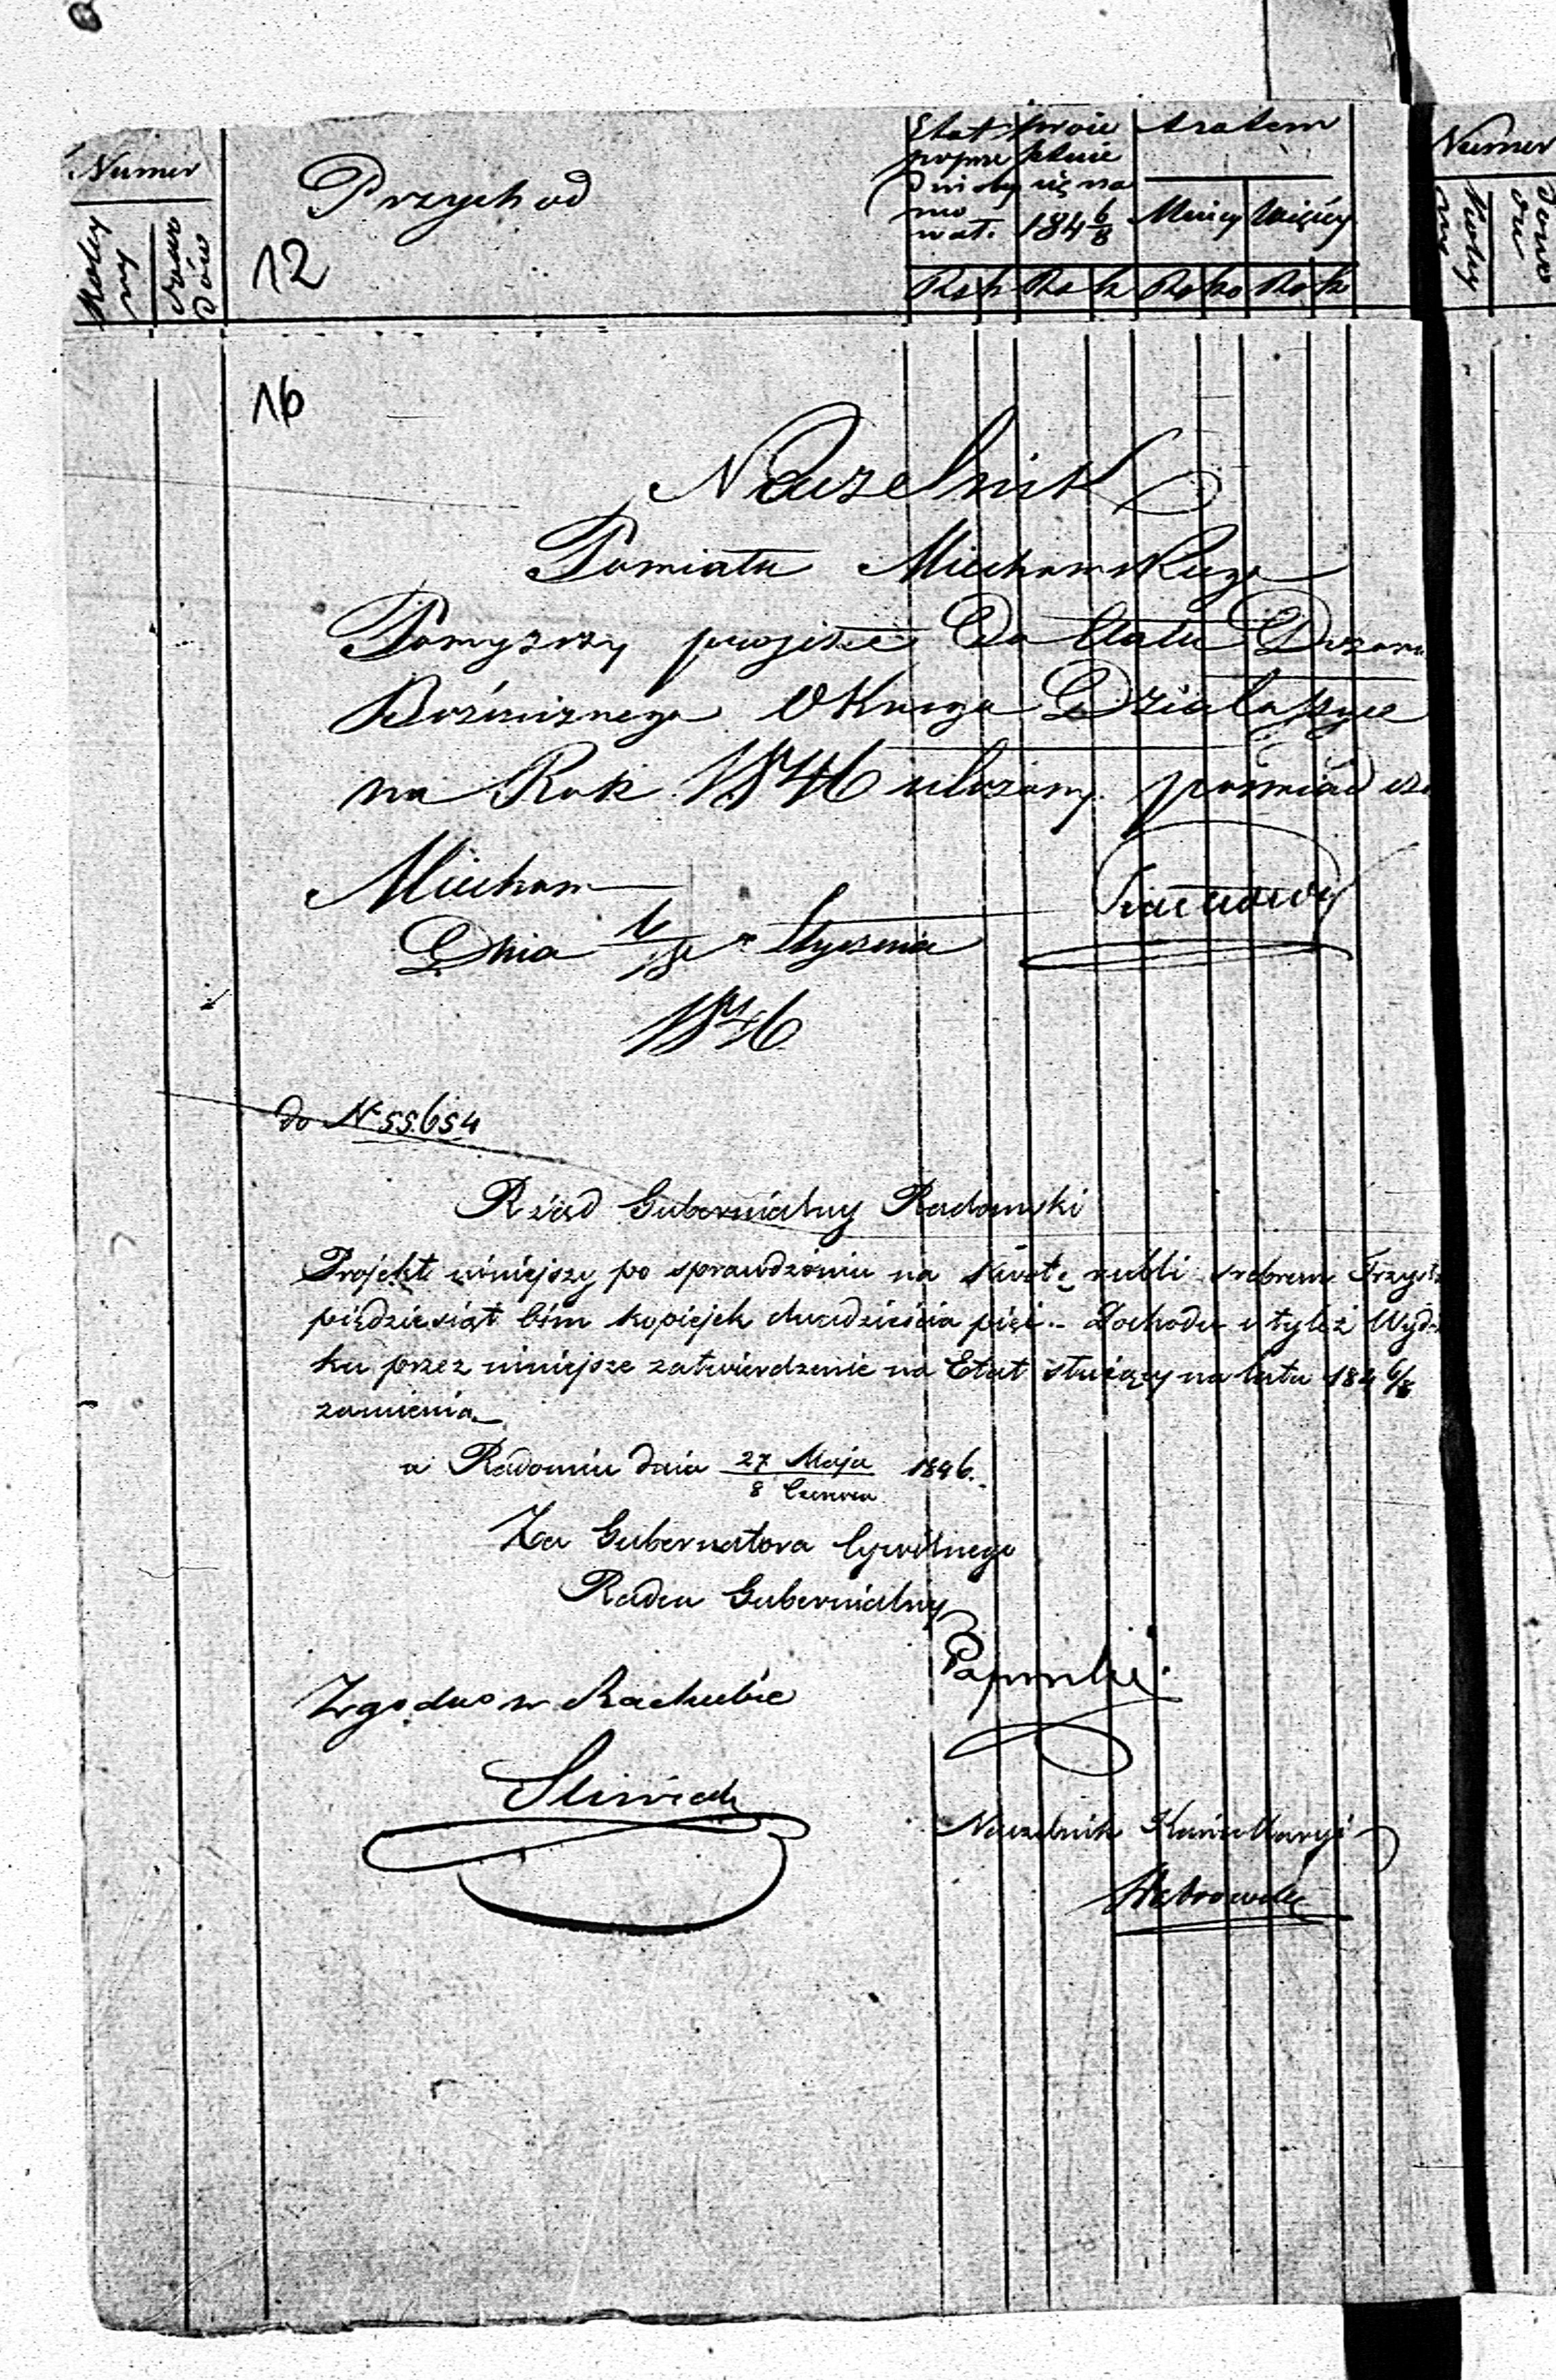 Numer
Kolejny
dowodów
Przychod
12
Etat poprzednio by mował.
Projektuje się na 184 6/8
Zatem
Mniej
Więcej
Rs k Rs k Rs ko Rs k
Numer
Kolejny
dowodu
16
Naczelnik
Powiatu Miechowskiego
Powyższy projekt Do Etatu Dozoru
Bóżniczego Okręgu Działoszyce
na Rok 1846 ułożony poświadcza
Miechow
Dnia Stycznia
1846
do N 55654
Rząd Gubernialny Radomski
Projekt niniejszy po sprawdzeniu na kwotę rubli srebrem Trzysta
pięćdziesiąt ośm kopiejek dwadzieścia pięć.- Dochodu i tyleż Wydat
ku przez niniejsze zatwierdzenie na Etat służący na lata 184 6/8
zamienia
w Radomiu dnia 27 Maja / 8 Czerwca 1846.
Za Gubernatora Cywilnego
Radca Gubernialny
Zgodno w Rachubie
Naczelnik Kancellaryi